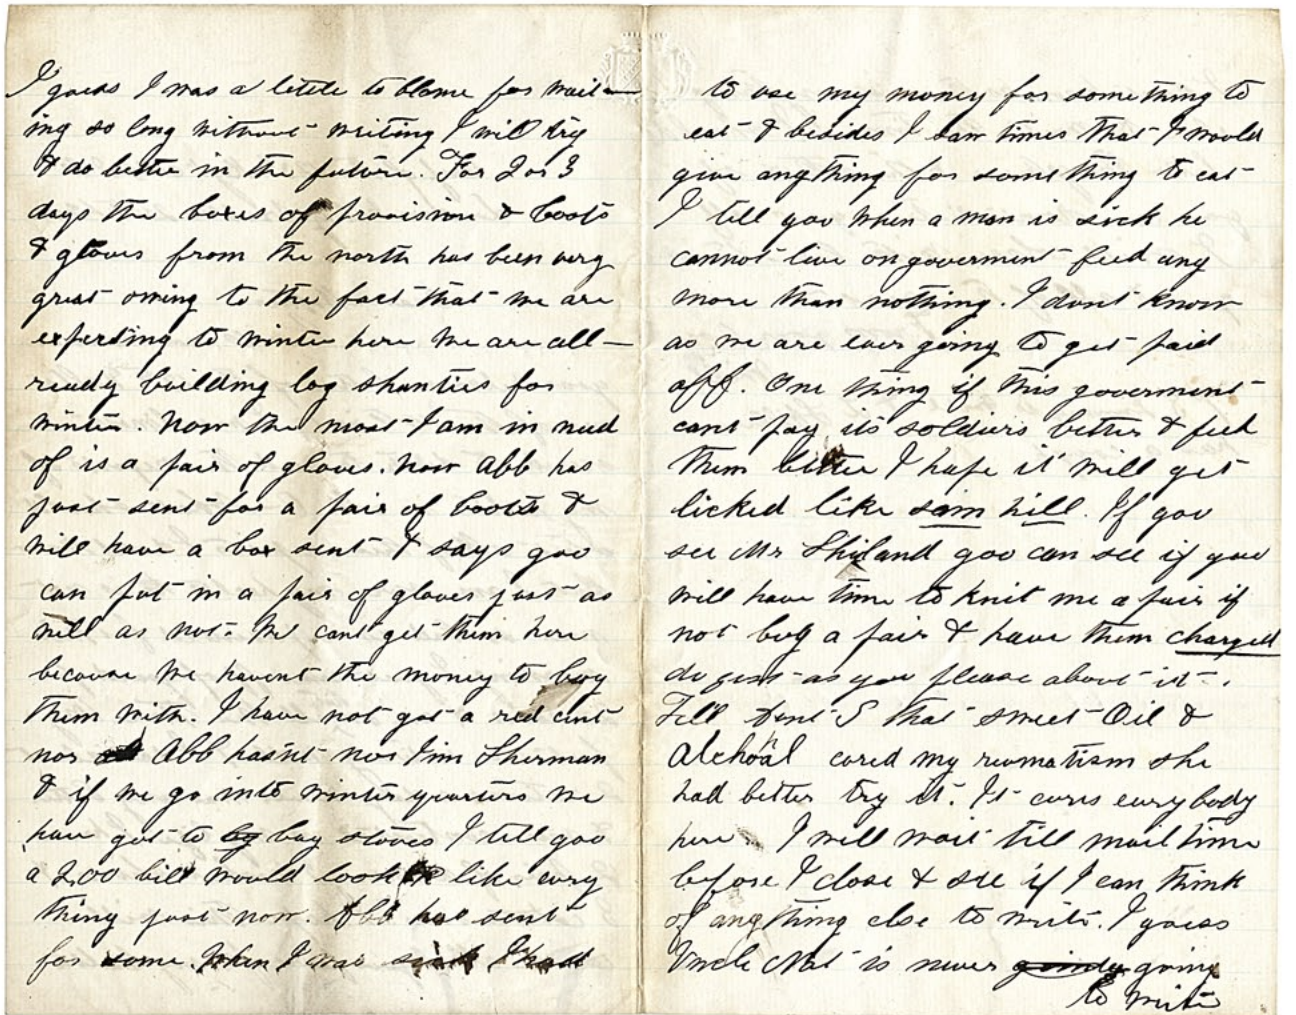 I guess I was a letele to blame for wait-
ing so long without writing I will try
& do bettie in the future. For 2 or 3
days the boxes of provision & boots
& gloves from the north has been very
great owing to the fact that we are
experting to winter here We are all-
ready building log shanties for
winter. Now the most I am in need
of is a pair of gloves. Now Abb has
just sent for a pair of boots &
will have a box sent & says you
can put in a pair of gloves just as
well as not. We cant get them here
because we havent the money to buy
them with. I have not got a red cent
nor Abb hasnt nor Jim Sherman
& if we go into winter quarters we
have got to by buy stoves I tell you
a 2,00 bill would look like every
thing just now. Abb has sent
for some. When I was sick I had
to use my money for something to
eat & besides I saw times that I would
give anything for something to eat
I tell you when a man is sick he
cannot live on goverment feed any
more than nothing. I dont know
as we are ever going to get paid
off. One thing if this goverment
cant pay its soldiers better & feed
them better I hope it will get
licked like sam hill. If you
see Mr Shiland you can see if you
will have time to knit me a pair if
not buy a pair & have them charged
do jest as you please about it.
Tell Aunt S that sweet Oil &
Alchohal cured my reumatism she
had better try it. It cures everybody
here. I will wait till mail time
before I close & see if I can think
of anything else to write. I guess
Uncle Nat is never going
to write